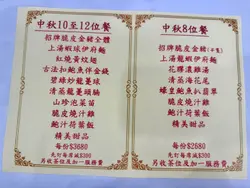 中秋10至12位餐
招牌脆皮金豬全體
上湯蝦球伊府麵
紅燒黃炆翅
古法扣鮑魚伴金錢
碧綠炒龍蔓球
清蒸龍躉頭腩
山珍泡菜苗
脆皮燒汁雞
鮑汁荷葉飯
精美甜品
每份$3680
先訂每席減$300
另收茶位及加一服務費
中秋8位餐
招牌脆皮金豬
上湯龍蝦伊府麵
花膠燉雞湯
清蒸海花尾
蠔皇鮑魚扒翡翠
脆皮燒汁雞
鮑汁荷葉飯
精美甜品
每份$2680
先訂每席減$200
另收茶位及加一服務費